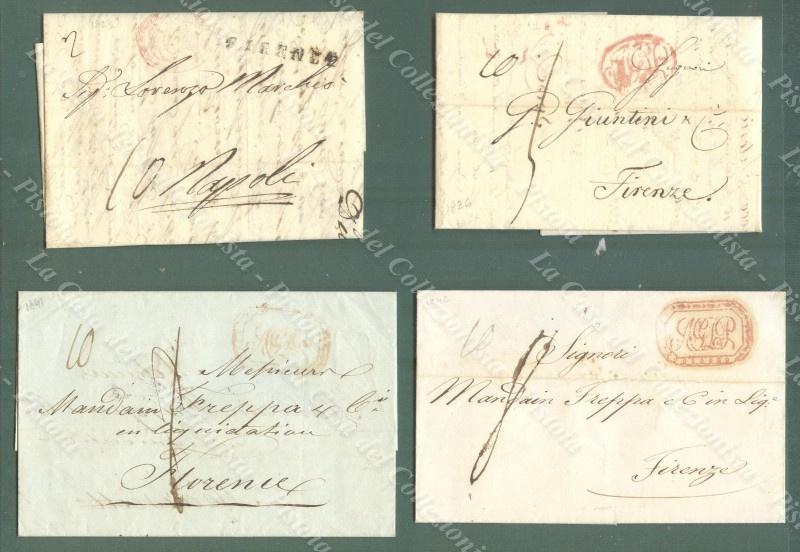 1825
FIRENZE
Sig.r Lorenzo Marchis
10 Napoli
10
Signori
P. Giuntini & C.
Firenze.
1826
1841
10
Messieurs
Mandain Freppa & C.ie
en liquidation
Florence
1842
10
Signori
Mandain Freppa e C in Liq.e
Firenze
La Casa del Collezionista - Pistoia